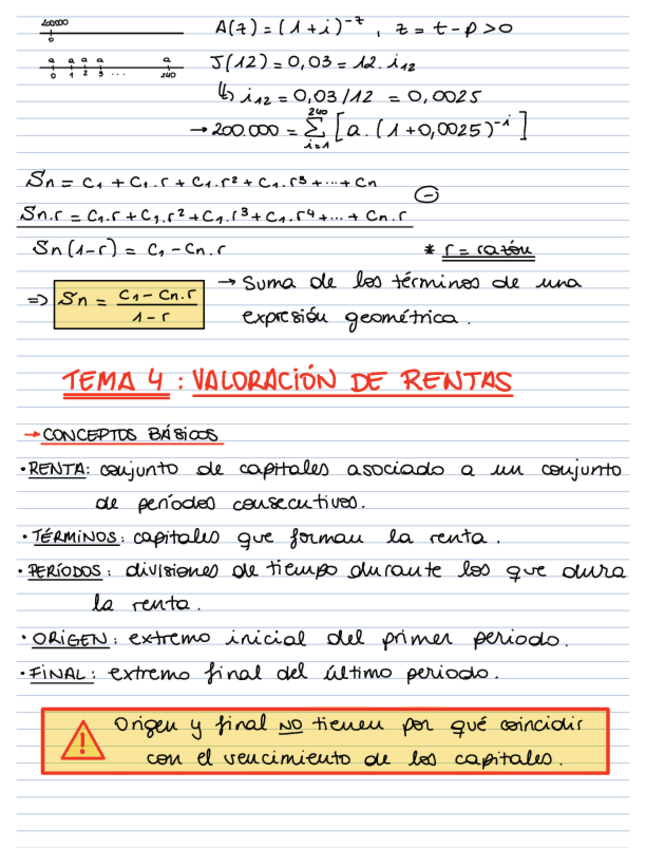 200.000
0
A(z) = (1+i)^-z , z = t-p > 0
a a a a a
0 1 2 3 ... 240
J(12) = 0,03 = 12.i12
↳ i12 = 0,03/12 = 0,0025
→ 200.000 = Σ(i=1, 240) [a.(1+0,0025)^-i]
Sn = C1 + C1.r + C1.r² + C1.r³ + ... + Cn
⊖
Sn.r = C1.r + C1.r² + C1.r³ + C1.r⁴ + ... + Cn.r
Sn(1-r) = C1 - Cn.r
* r = razón
⇒ Sn = (C1 - Cn.r) / (1-r)
→ Suma de los términos de una
expresión geométrica.
TEMA 4 : VALORACIÓN DE RENTAS
→ CONCEPTOS BÁSICOS
· RENTA: conjunto de capitales asociado a un conjunto
de períodos consecutivos.
· TÉRMINOS: capitales que forman la renta.
· PERÍODOS: divisiones de tiempo durante los que dura
la renta.
· ORIGEN: extremo inicial del primer periodo.
· FINAL: extremo final del último periodo.
! Origen y final NO tienen por qué coincidir
con el vencimiento de los capitales.